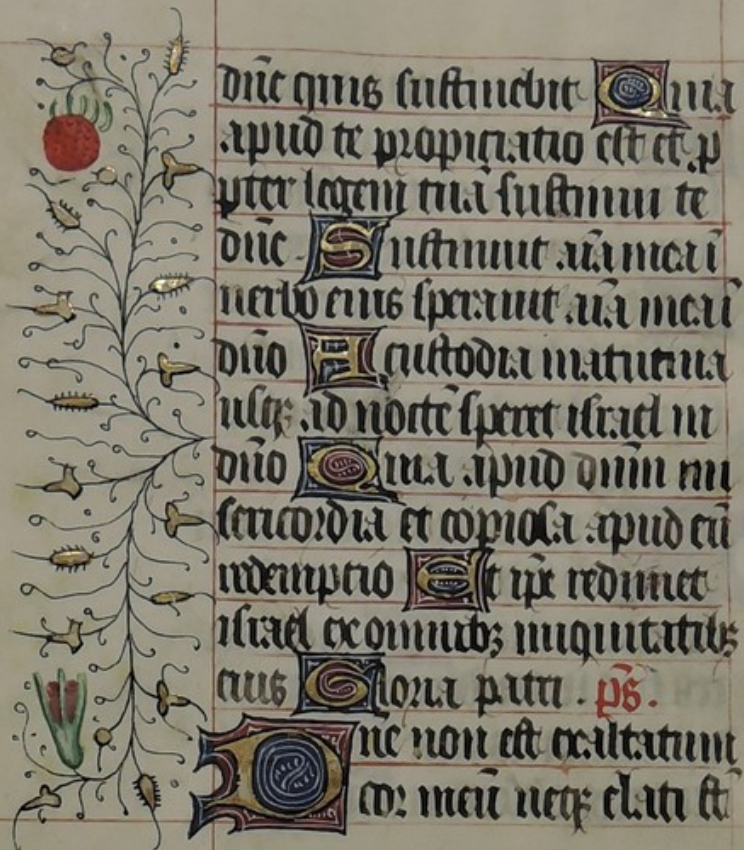 dñe quis sustinebit Quia
apud te propiciatio est et p
pter legem tuā sustinui te
dñe. Sustinuit aīa mea ī
verbo eius speravit aīa mea ī
dño A custodia matutina
usqꝫ ad noctē speret israel in
dño Quia apud dñm mi
sericordia et copiosa apud eū
redemptio Et ipē redimet
israel ex omnibꝫ iniquitatibꝫ
eius Gloria patri. p̄s.
Dñe non est exaltatum
cor meū neqꝫ elati st̄